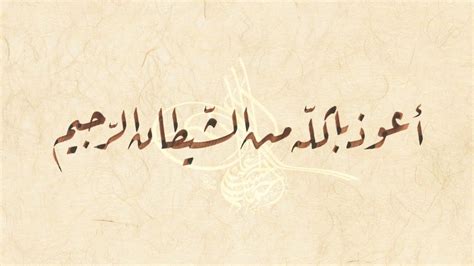 أعوذ بالله من الشّيطان الرّجيم